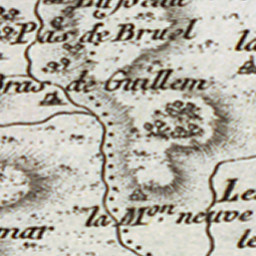 Plas de Bruel
la
Bras de Guillem
la M.on neuve
Les
mar
le